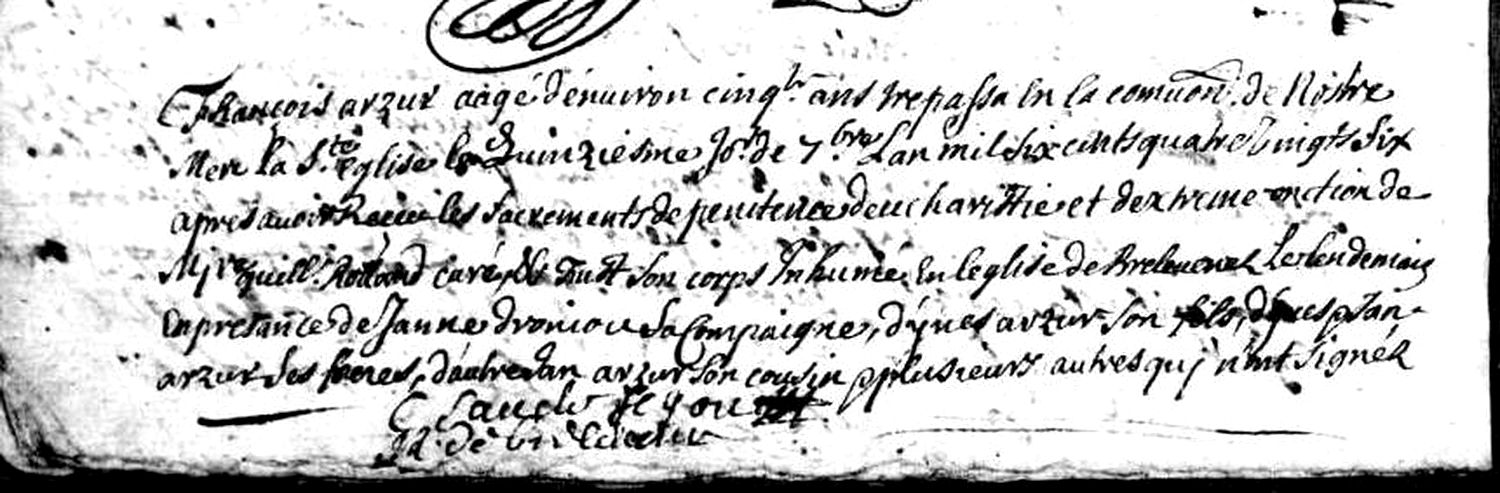 François arzur aagé d'énuiron cinqte ans trepassa En La comuon de Nostre
Mere la Ste église le Quinziesme Jor de 7bre Lan mil six cents quatre Vingts six
apres auoir Receu les sacrements de penitence deucharistie et dextreme onction de
Mire guill. Rolland curé, Et Fust son corps Inhumé En L'eglise de Breleuenez Le lendemain
En presance de Janne droniou sa Compaigne, d'yues arzur son fils, d'yues Jan
arzur ses freres, d'autre Jan arzur son cousin plusieurs autres quj n'ont signér